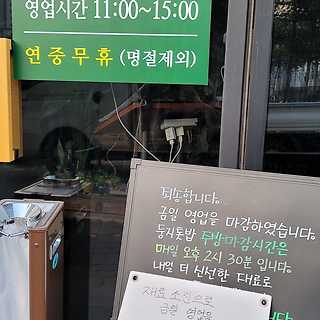 영업시간 11:00~15:00
연중무휴 (명절제외)
죄송합니다.
금일 영업을 마감하였습니다.
둥지톳밥 주방마감시간은
매일 오후 2시 30분 입니다.
내일 더 신선한 재료로
니다.
재료 소진으로
금일 영업을